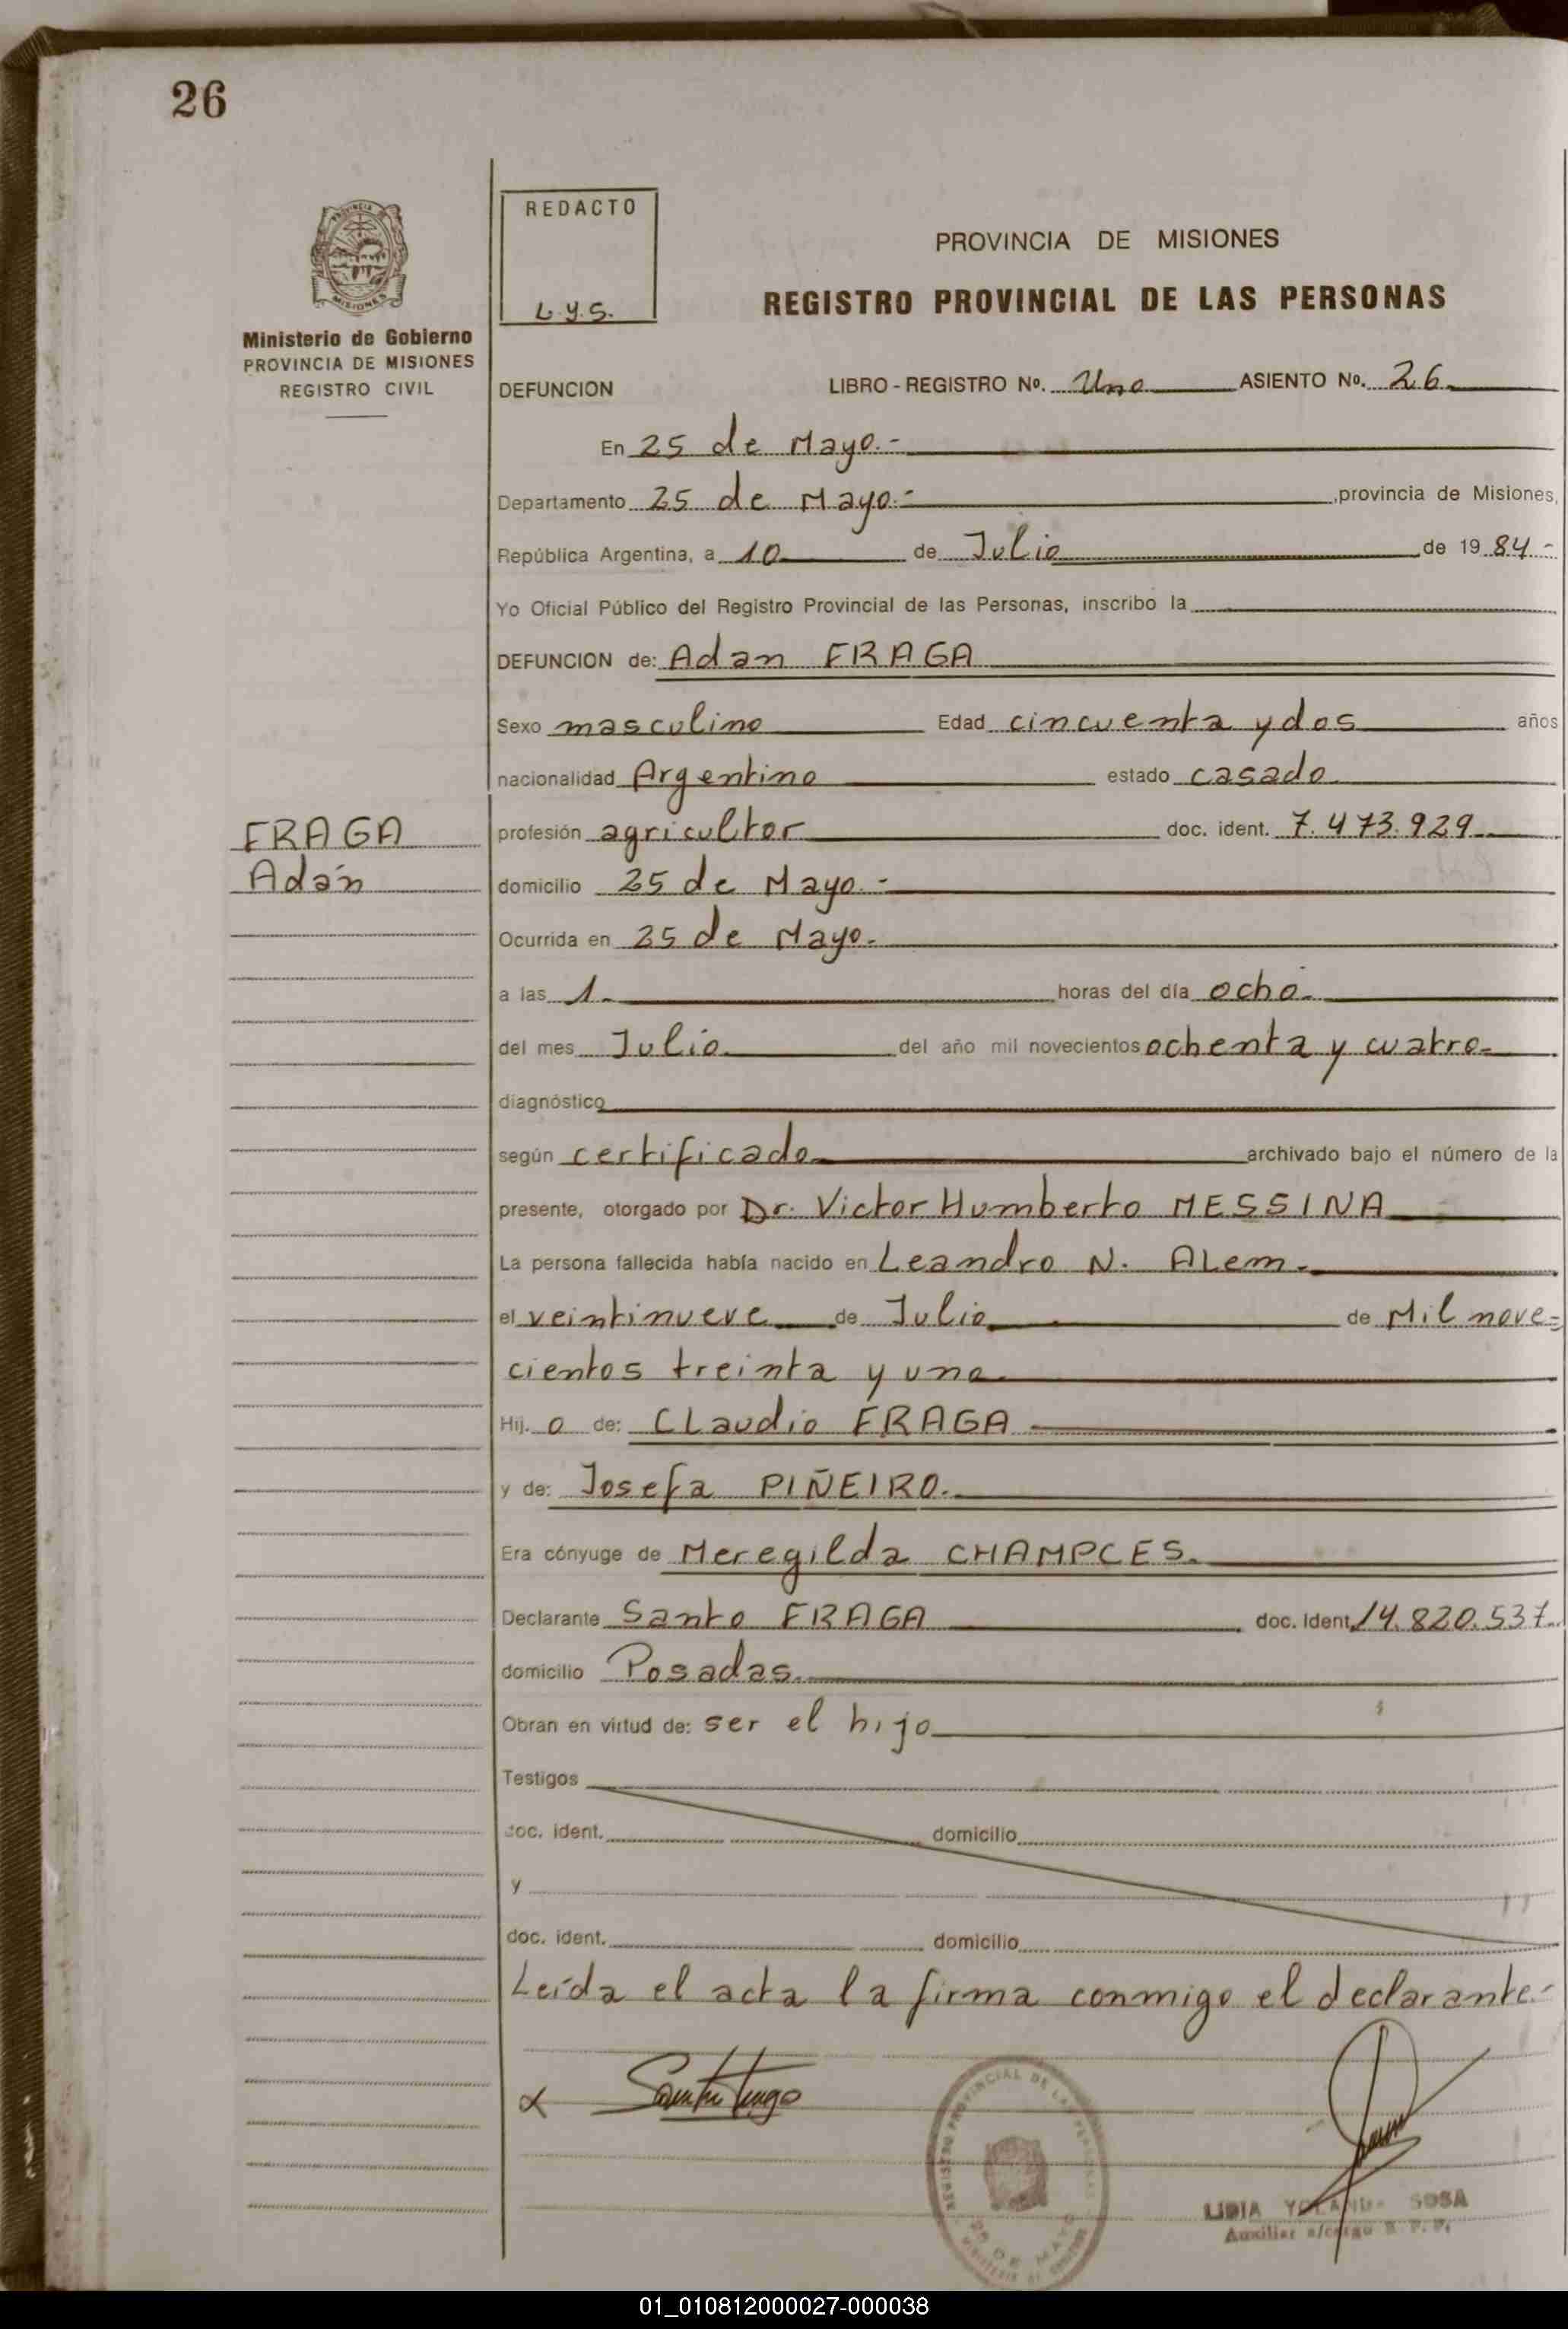 26
PROVINCIA
MISIONES
Ministerio de Gobierno
PROVINCIA DE MISIONES
REGISTRO CIVIL
REDACTO
L.Y.S.
PROVINCIA DE MISIONES
REGISTRO PROVINCIAL DE LAS PERSONAS
DEFUNCION LIBRO - REGISTRO No. Uno ASIENTO No. 26
En 25 de Mayo.-
Departamento 25 de Mayo.- ,provincia de Misiones,
República Argentina, a 10 de Julio de 19 84-
Yo Oficial Público del Registro Provincial de las Personas, inscribo la
DEFUNCION de: Adan FRAGA
Sexo masculino Edad cincuenta y dos años
nacionalidad Argentino estado casado
FRAGA
Adán
profesión agricultor doc. ident. 7.473.929
domicilio 25 de Mayo.-
Ocurrida en 25 de Mayo.-
a las 1.- horas del día ocho.
del mes Julio. del año mil novecientos ochenta y cuatro-
diagnóstico
según certificado archivado bajo el número de la
presente, otorgado por Dr. Victor Humberto MESSINA
La persona fallecida había nacido en Leandro N. ALem.-
el veintinueve de Julio de Mil nove=
cientos treinta y uno
Hij. o de: CLaudio FRAGA
y de: Josefa PIÑEIRO.
Era cónyuge de Meregilda CHAMPCES.
Declarante Santo FRAGA doc. Ident 14.820.537.
domicilio Posadas.
Obran en virtud de: ser el hijo
Testigos
doc. ident. domicilio
y
doc. ident. domicilio
Leída el acta la firma conmigo el declarante.-
REGISTRO PROVINCIAL DE LAS PERSONAS
25 DE MAYO
LIDIA YOLANDA SOSA
Auxiliar a/cargo R. P. P.
01_010812000027-000038